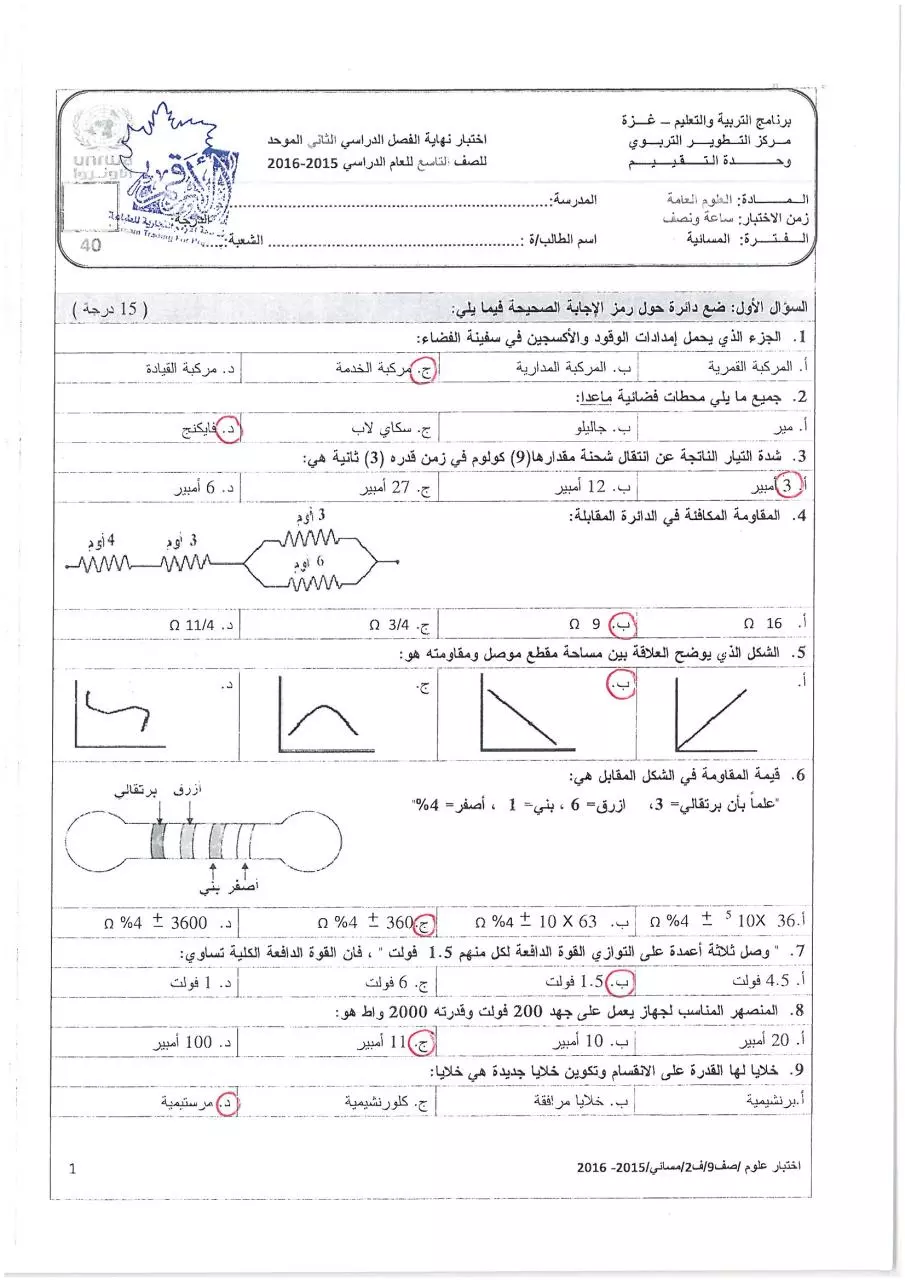 برنامج التربية والتعليم – غـزة
مـركـز التـطويـر التربـوي
وحـــــدة الـتـــقـيـــيـــم
اختبار نهاية الفصل الدراسي الثاني الموحد
للصف التاسع للعام الدراسي 2015-2016
unrwa
الأونروا
40
المـــــــادة: العلوم العامة
المدرسة:
الدرجة:
زمن الاختبار: ساعة ونصف
الـــفـــتـــرة: المسائية
اسم الطالب/ة :
الشعبة:
السؤال الأول: ضع دائرة حول رمز الإجابة الصحيحة فيما يلي: ( 15 درجة )
1. الجزء الذي يحمل إمدادات الوقود والأكسجين في سفينة الفضاء:
أ. المركبة القمرية ب. المركبة المدارية ج. مركبة الخدمة د. مركبة القيادة
2. جميع ما يلي محطات فضائية ماعدا:
أ. مير ب. جاليلو ج. سكاي لاب د. فايكنج
3. شدة التيار الناتجة عن انتقال شحنة مقدارها(9) كولوم في زمن قدره (3) ثانية هي:
أ. 3 أمبير ب. 12 أمبير ج. 27 أمبير د. 6 أمبير
4. المقاومة المكافئة في الدائرة المقابلة:
3 أوم
6 أوم
3 أوم
4 أوم
أ. 16 Ω ب. 9 Ω ج. 3/4 Ω د. 11/4 Ω
5. الشكل الذي يوضح العلاقة بين مساحة مقطع موصل ومقاومته هو:
أ. ب. ج. د.
6. قيمة المقاومة في الشكل المقابل هي:
"علماً بأن برتقالي= 3، ازرق= 6 ، بني= 1 ، أصفر= 4%"
أزرق برتقالي
أصفر بني
أ.36 10X 5 ± 4% Ω ب. 63 X 10 ± 4% Ω ج. 360 ± 4% Ω د. 3600 ± 4% Ω
7. " وصل ثلاثة أعمدة على التوازي القوة الدافعة لكل منهم 1.5 فولت " ، فان القوة الدافعة الكلية تساوي:
أ. 4.5 فولت ب. 1.5 فولت ج. 6 فولت د. 1 فولت
8. المنصهر المناسب لجهاز يعمل على جهد 200 فولت وقدرته 2000 واط هو:
أ. 20 أمبير ب. 10 أمبير ج. 11 أمبير د. 100 أمبير
9. خلايا لها القدرة على الانقسام وتكوين خلايا جديدة هي خلايا:
أ.برنشيمية ب. خلايا مرافقة ج. كلورنشيمية د. مرستيمية
اختبار علوم /صف9/ف2/مسائي/2015- 2016
1